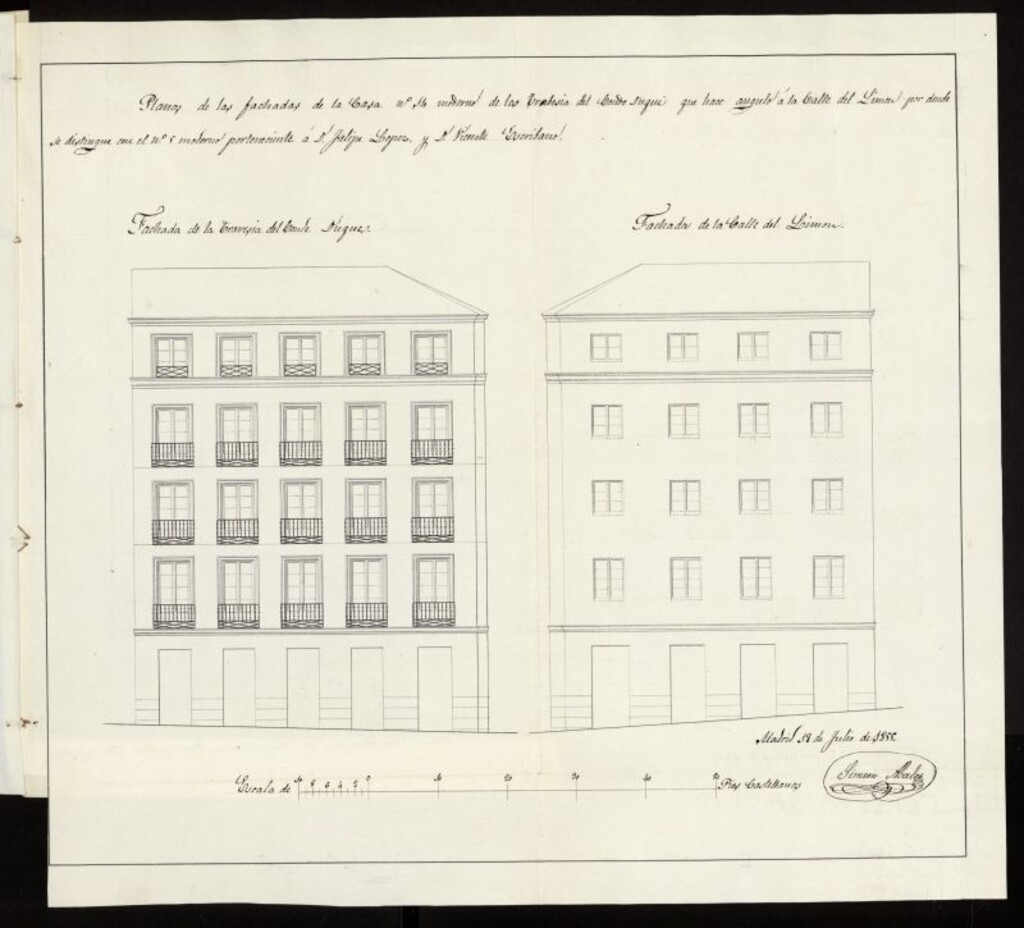 Planos de las fachadas de la Casa nº 14 moderno de la Travesia del Conde Duque que hace angulo á la Calle del Limon por donde
se distingue con el nº 5 moderno perteneciente á D. Felipe Lopez, y D. Vicente Escribano.
Fachada de la Travesia del Conde Duque.
Fachada de la Calle del Limon.
Madrid 18 de Julio de
Escala de 10 8 6 4 2 0 10 20 30 40 50 Pies Castellanos
Simeon Abalos